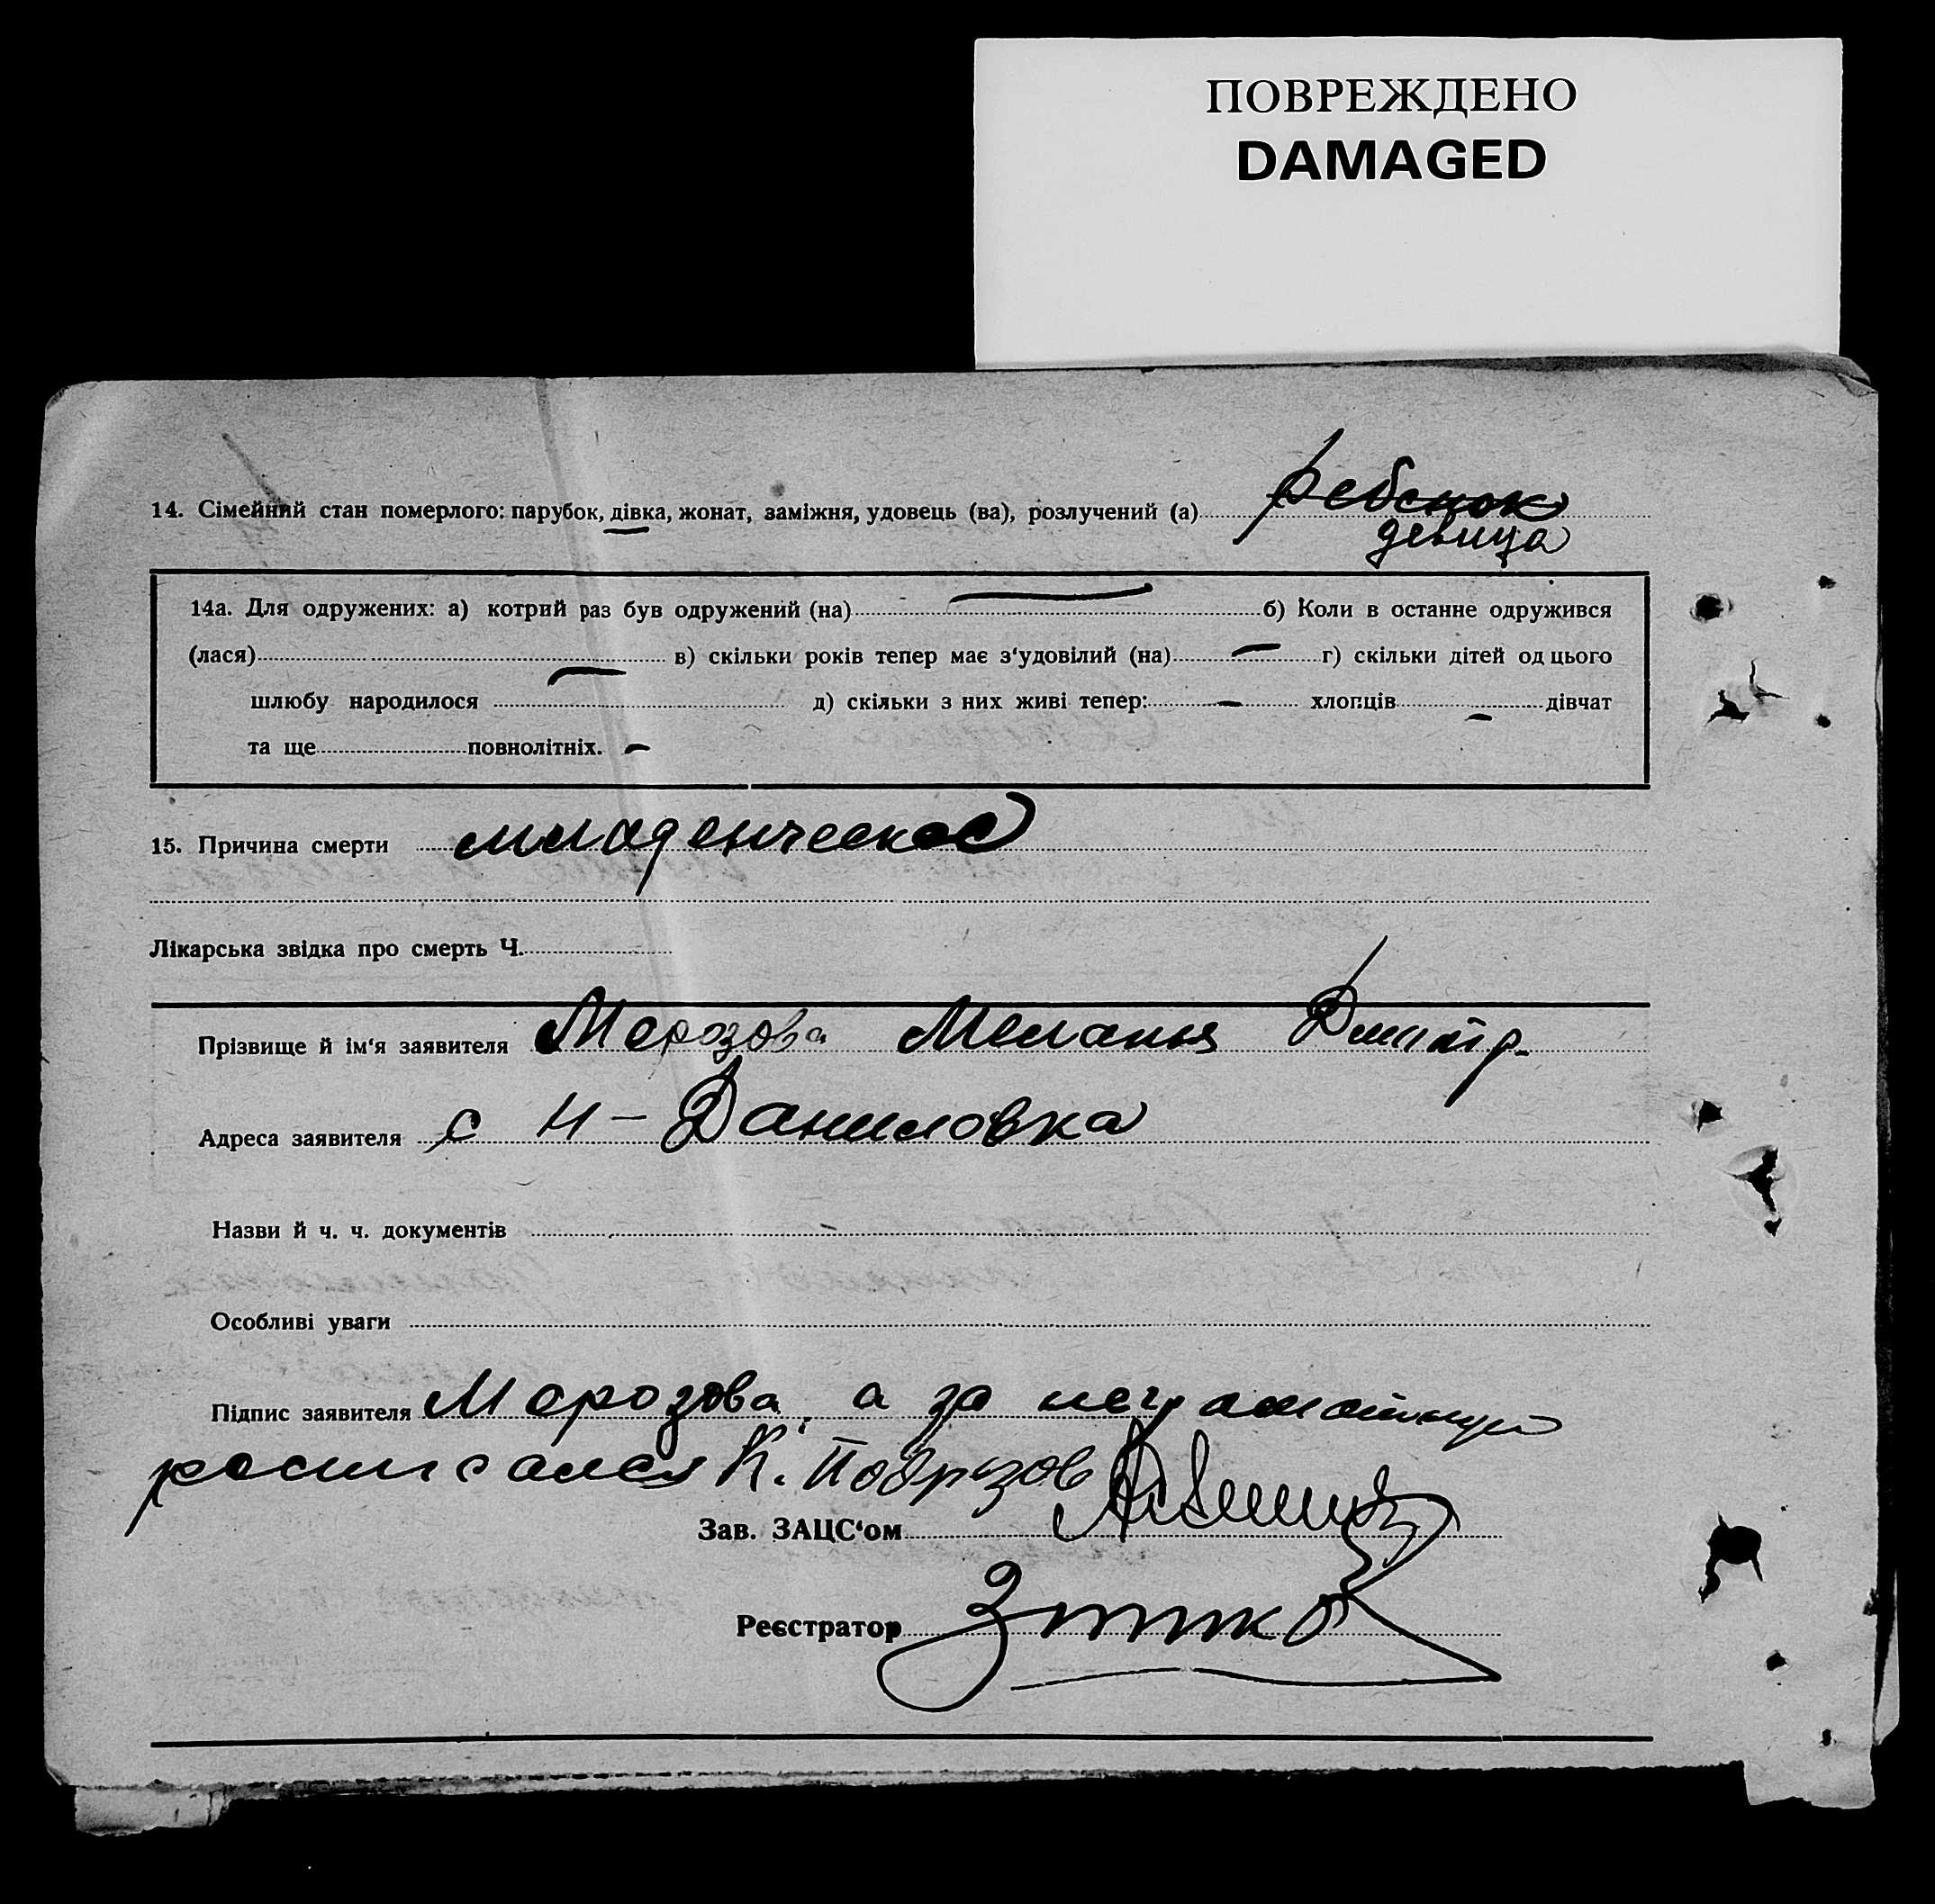 ПОВРЕЖДЕНО
DAMAGED
14. Сімейний стан померлого: парубок, дівка, жонат, заміжня, удовець (ва), розлучений (а) ребенок
девица
14а. Для одружених: а) котрий раз був одружений (на) — б) Коли в останне одружився
(лася) — в) скільки років тепер має з‘удовілий (на) — г) скільки дітей од цього
шлюбу народилося д) скільки з них живі тепер: — хлопців — дівчат
та ще повнолітніх. —
15. Причина смерти младенческое
Лікарська звідка про смерть Ч.
Прізвище й ім‘я заявителя Морозова Меланья Дмитр.
Адреса заявителя с Н-Даниловка
Назви й ч. ч. документів
Особливі уваги
Підпис заявителя Морозова, а за неграмотную
росписался К. Подрезов
Зав. ЗАЦС‘ом
Реєстратор